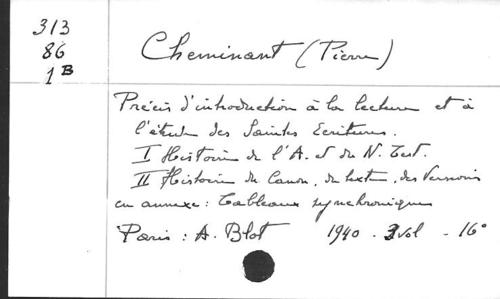 313
86
1 B
Cheminant (Pierre)
Précis d'introduction à la lecture et à
l'étude des Saintes Ecritures.
I Histoire de l'A. et du N. Test.
II Histoire du Canon, du texte, des Versions
en annexe : Tableaux synchroniques
Paris : A. Blot 1940 - 3 vol - 16°